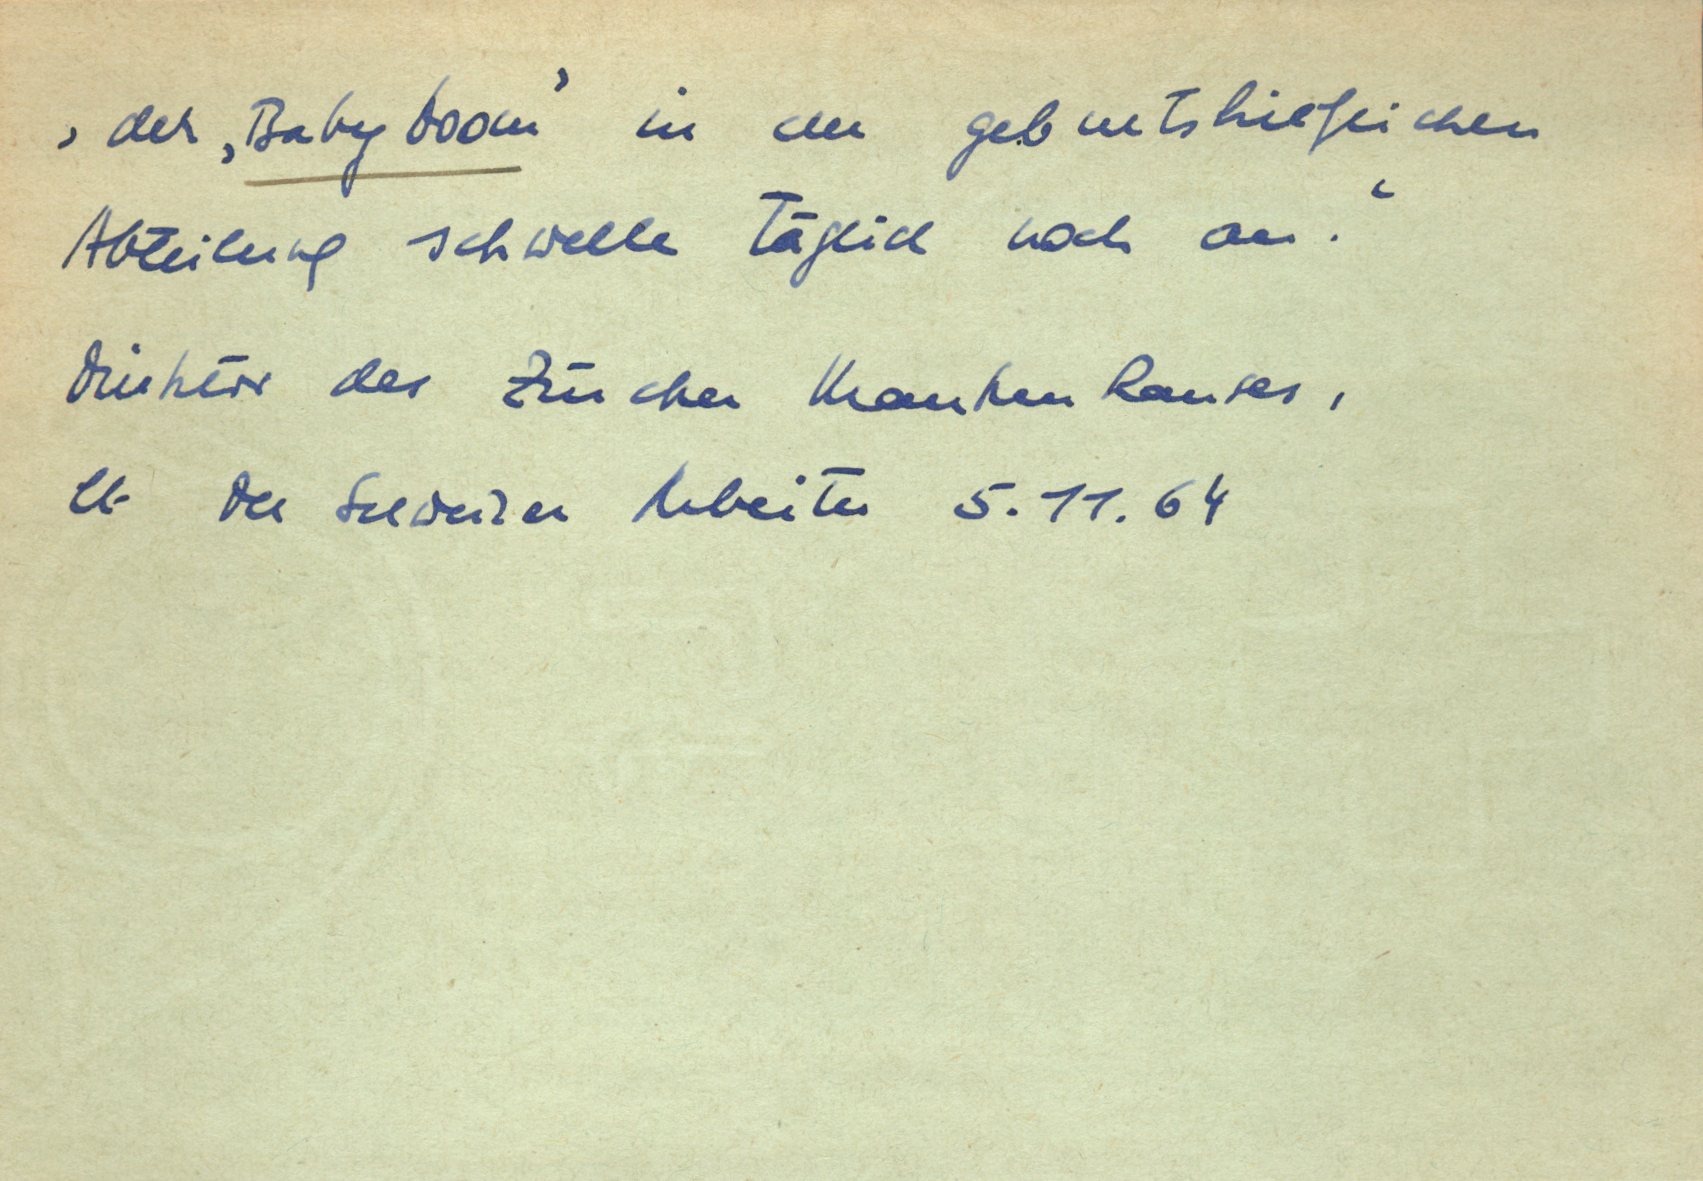 , der „Babyboom” in der geburtshilflichen
Abteilung schwelle täglich noch an.“
Direktor des Zürcher Krankenhauses,
lt. Der Schweizer Arbeiter 5.11.64